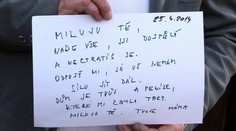 25.4.2014
MILUJU TĚ,
NADE VŠE, JSI DOSPĚLÁ
A NEZTRATÍŠ SE.
ODPUSŤ MI, JÁ UŽ NEMÁM
SÍLU JÍT DÁL.
DŮM JE TVŮJ A PENÍZE,
KTERÉ MI ZBYLY TAKY.
MILUJU TĚ. TVOJE MÁMA